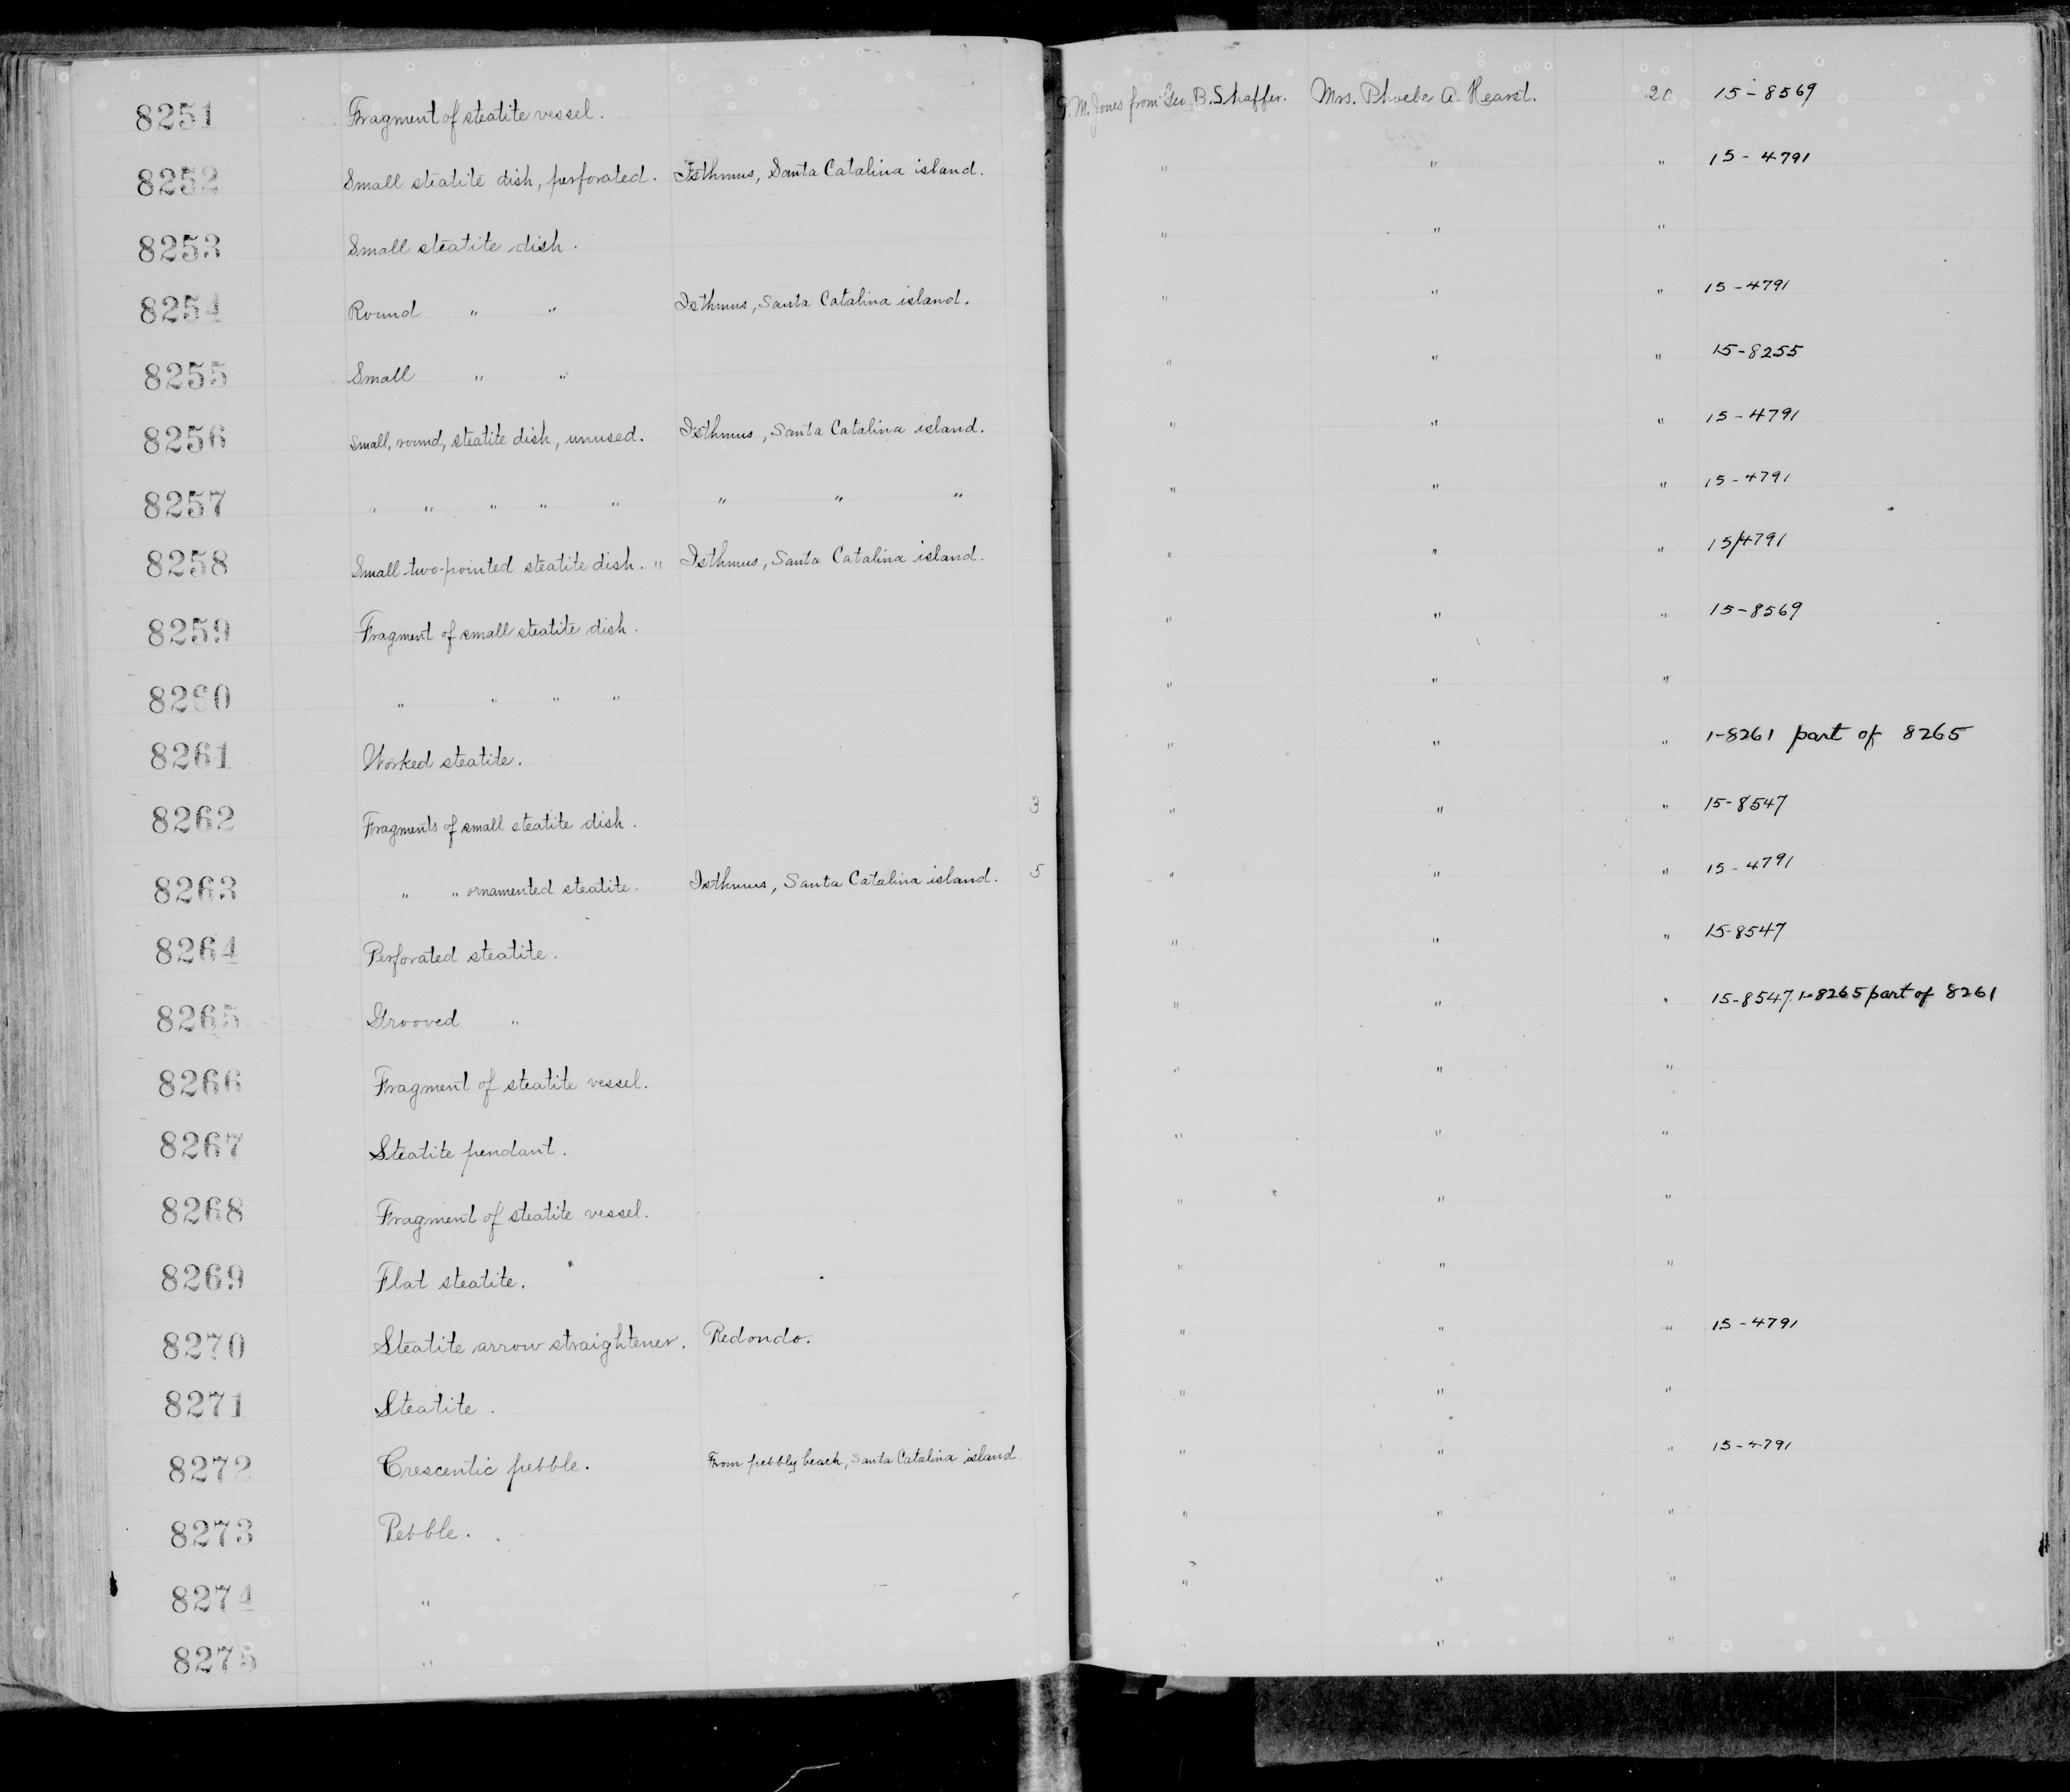 8251 Fragment of steatite vessel. P. M. Jones from Geo B. Shaffer. Mrs. Phoebe A. Hearst. 20 15-8569
8252 Small steatite dish, perforated. Isthmus, Santa Catalina island. " " " 15-4791
8253 Small steatite dish. " " "
8254 Round " " Isthmus, Santa Catalina island. " " " 15-4791
8255 Small " " " " " 15-8255
8256 Small, round, steatite dish, unused. Isthmus, Santa Catalina island. " " " 15-4791
8257 " " " " " " " " " " " 15-4791
8258 Small two-pointed steatite dish. " Isthmus, Santa Catalina island. " " " 15/4791
8259 Fragment of small steatite dish. " " " 15-8569
8260 " " " " " " "
8261 Worked steatite. " " " 1-8261 part of 8265
8262 Fragments of small steatite dish. 3 " " " 15-8547
8263 " " ornamented steatite. Isthmus, Santa Catalina island. 5 " " " 15-4791
8264 Perforated steatite. " " " 15-8547
8265 Grooved " " " " 15-8547. 1-8265 part of 8261
8266 Fragment of steatite vessel. " " "
8267 Steatite pendant. " " "
8268 Fragment of steatite vessel. " " "
8269 Flat steatite. " " "
8270 Steatite arrow straightener. Redondo. " " " 15-4791
8271 Steatite. " " "
8272 Crescentic pebble. From pebbly beach, Santa Catalina island. " " " 15-4791
8273 Pebble. " " "
8274 " " " "
8275 " " " "